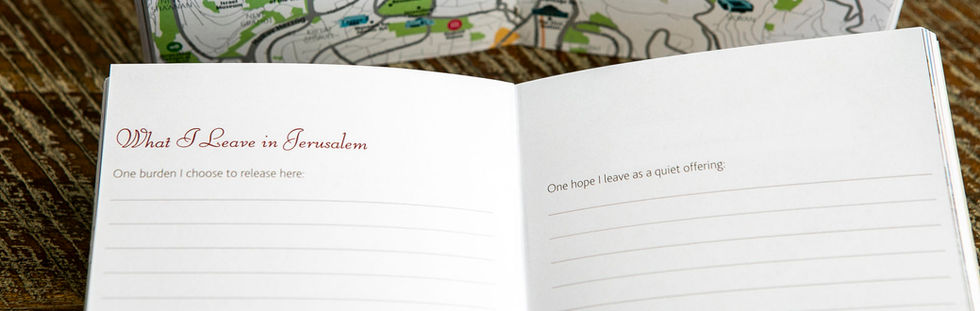 Israel
Museum
What I Leave in Jerusalem
One burden I choose to release here:
One hope I leave as a quiet offering: